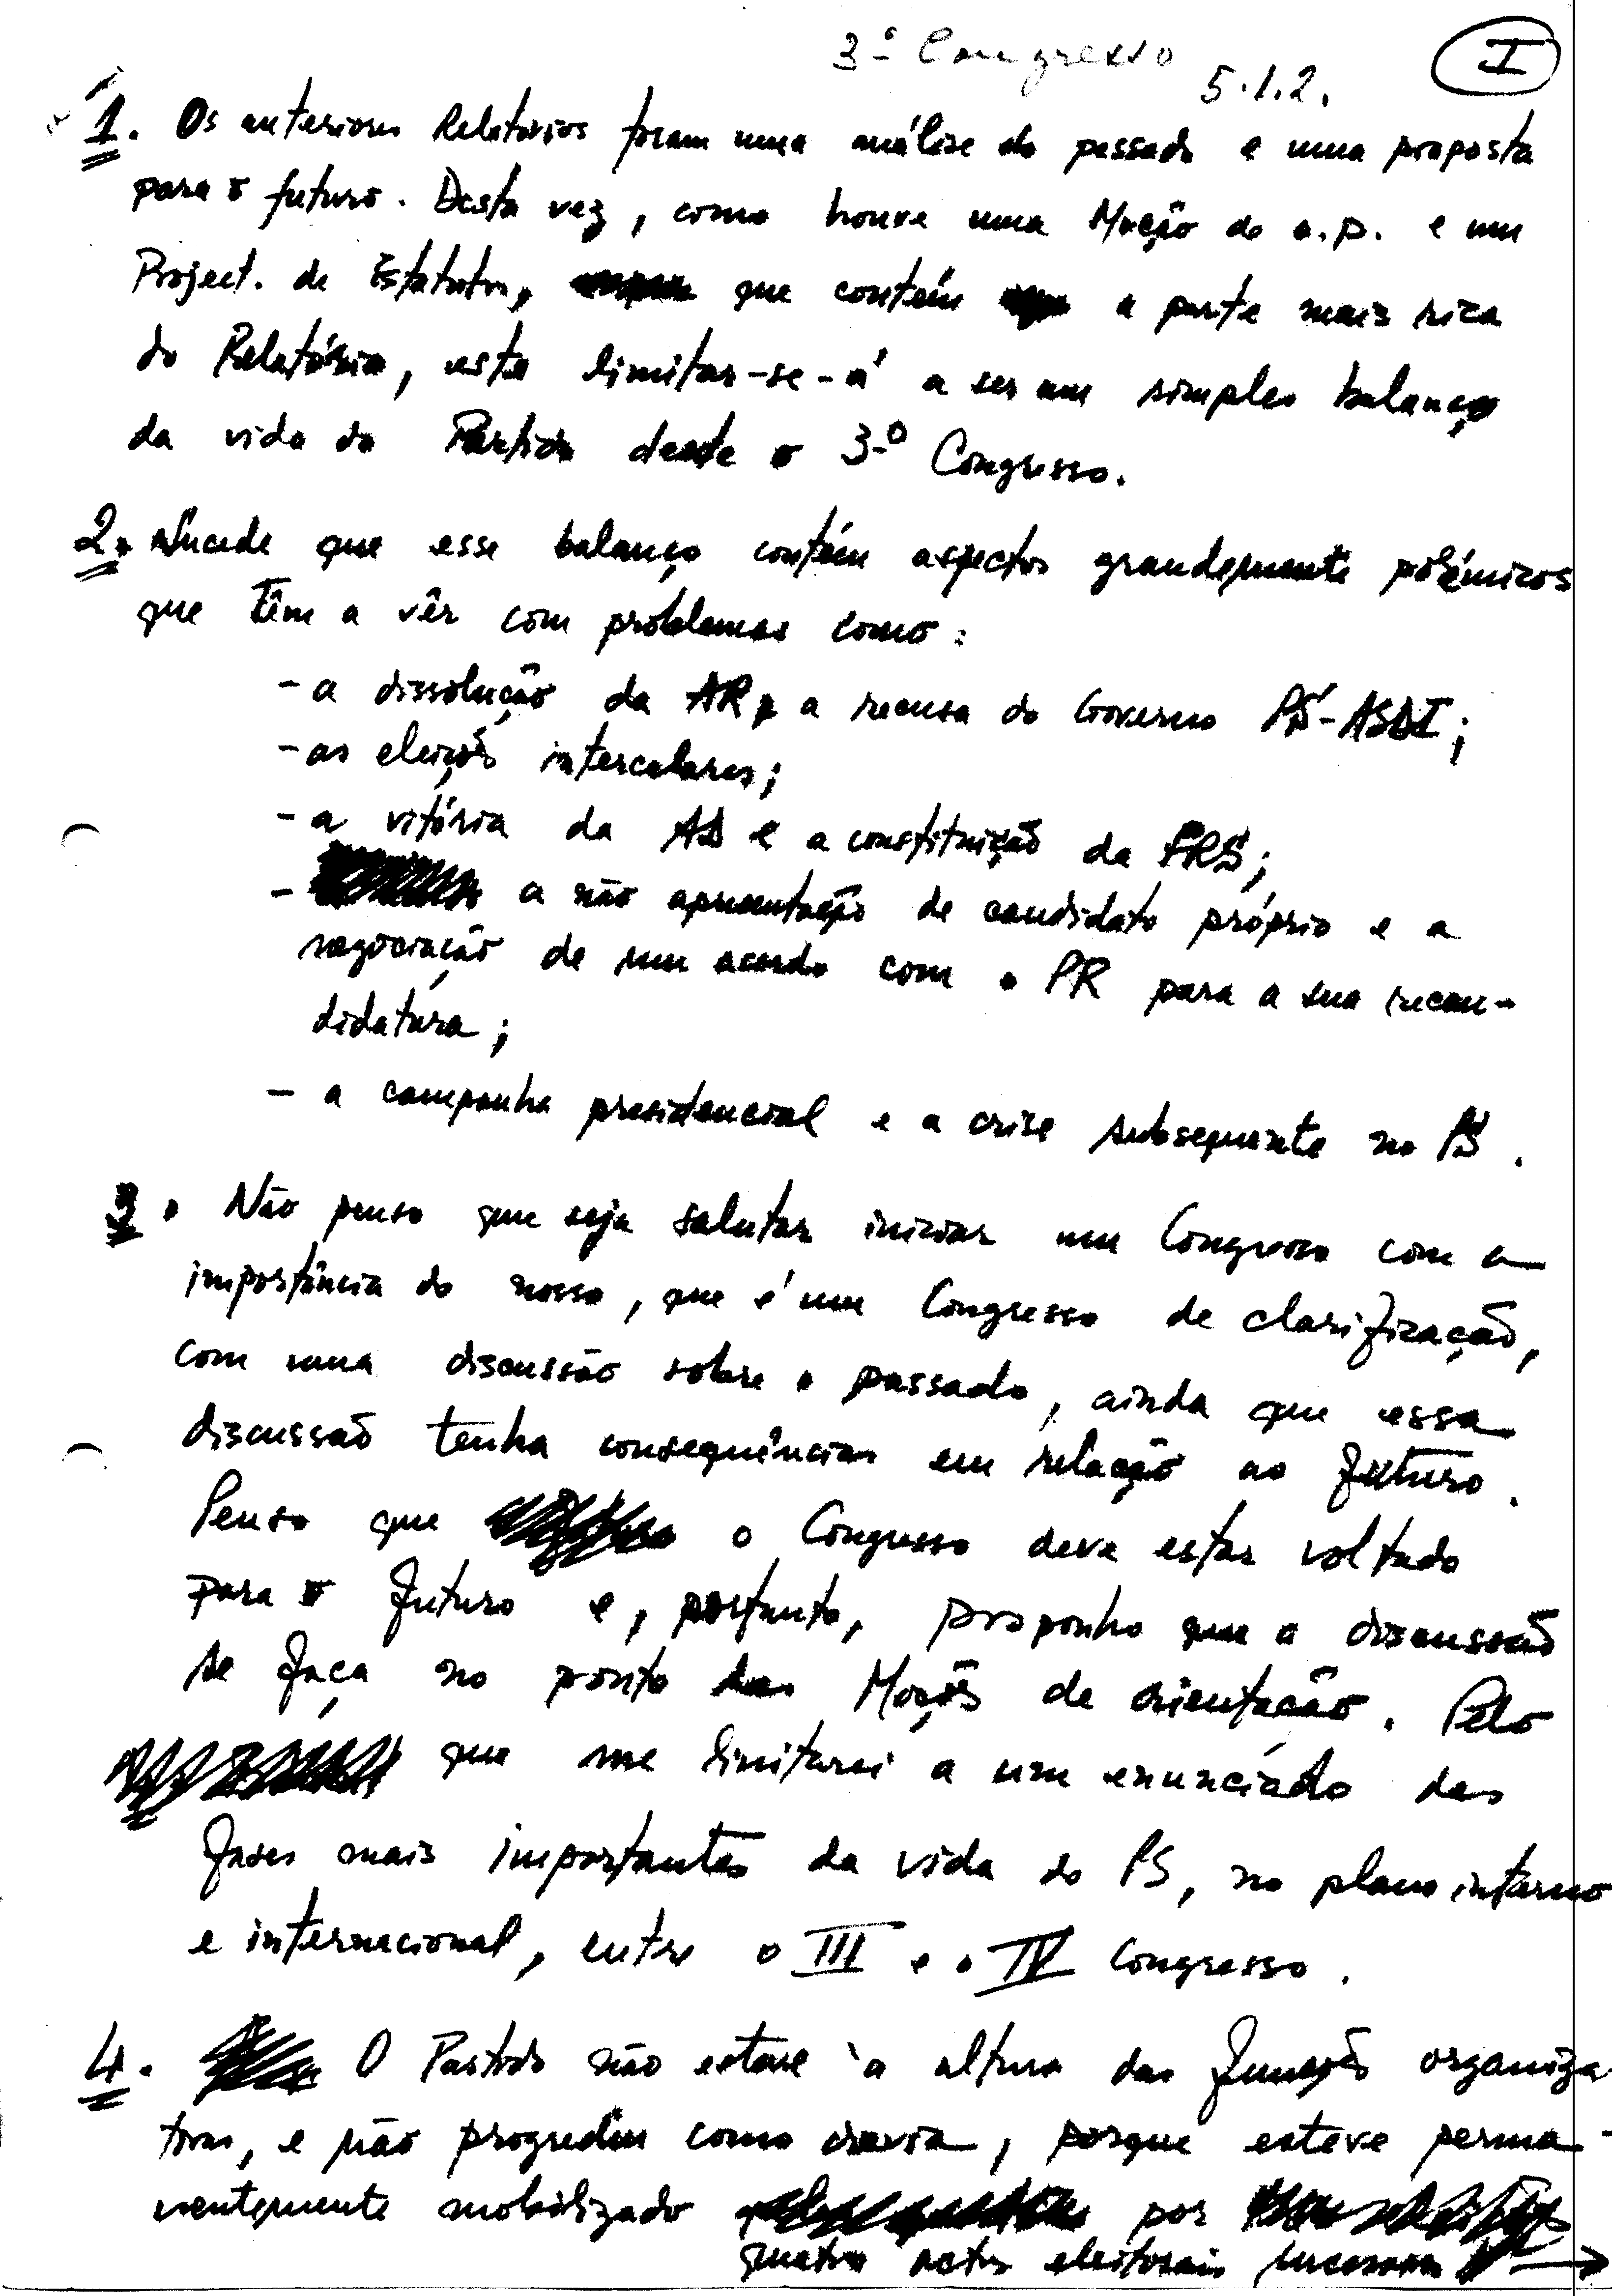 3º Congresso
5.1.2.
I
1. Os anteriores Relatórios foram uma análise do passado e uma proposta
para o futuro. Desta vez, como houve uma Moção do s.p. e um
Project. de Estatutos, que contêm a parte mais rica
do Relatório, este limitar-se-á a ser um simples balanço
da vida do Partido desde o 3º Congresso.
2. Sucede que esse balanço contém aspectos grandemente polémicos
que têm a vêr com problemas como:
- a dissolução da AR, a recusa do Governo PS-ASDI;
- as eleições intercalares;
- a vitória da AD e a constituição da FRS;
- a não apresentação de candidato próprio e a
negociação de um acordo com o PR para a sua recan-
didatura;
- a campanha presidencial e a crise subsequente no PS.
3. Não penso que seja salutar iniciar um Congresso com a
importância do nosso, que é um Congresso de clarificação,
com uma discussão sobre o passado, ainda que essa
discussão tenha consequências em relação ao futuro.
Penso que o Congresso deve estar voltado
para o futuro e, portanto, proponho que a discussão
se faça no ponto das Moções de orientação. Pelo
que me limitarei a um enunciado das
fases mais importantes da vida do PS, no plano interno
e internacional, entre o III e o IV Congresso.
4. O Partido não esteve à altura das funções organiza-
tivas, e não progrediu como devia, porque esteve perma-
nentemente mobilizado por
quatro actos eleitorais sucessivos →